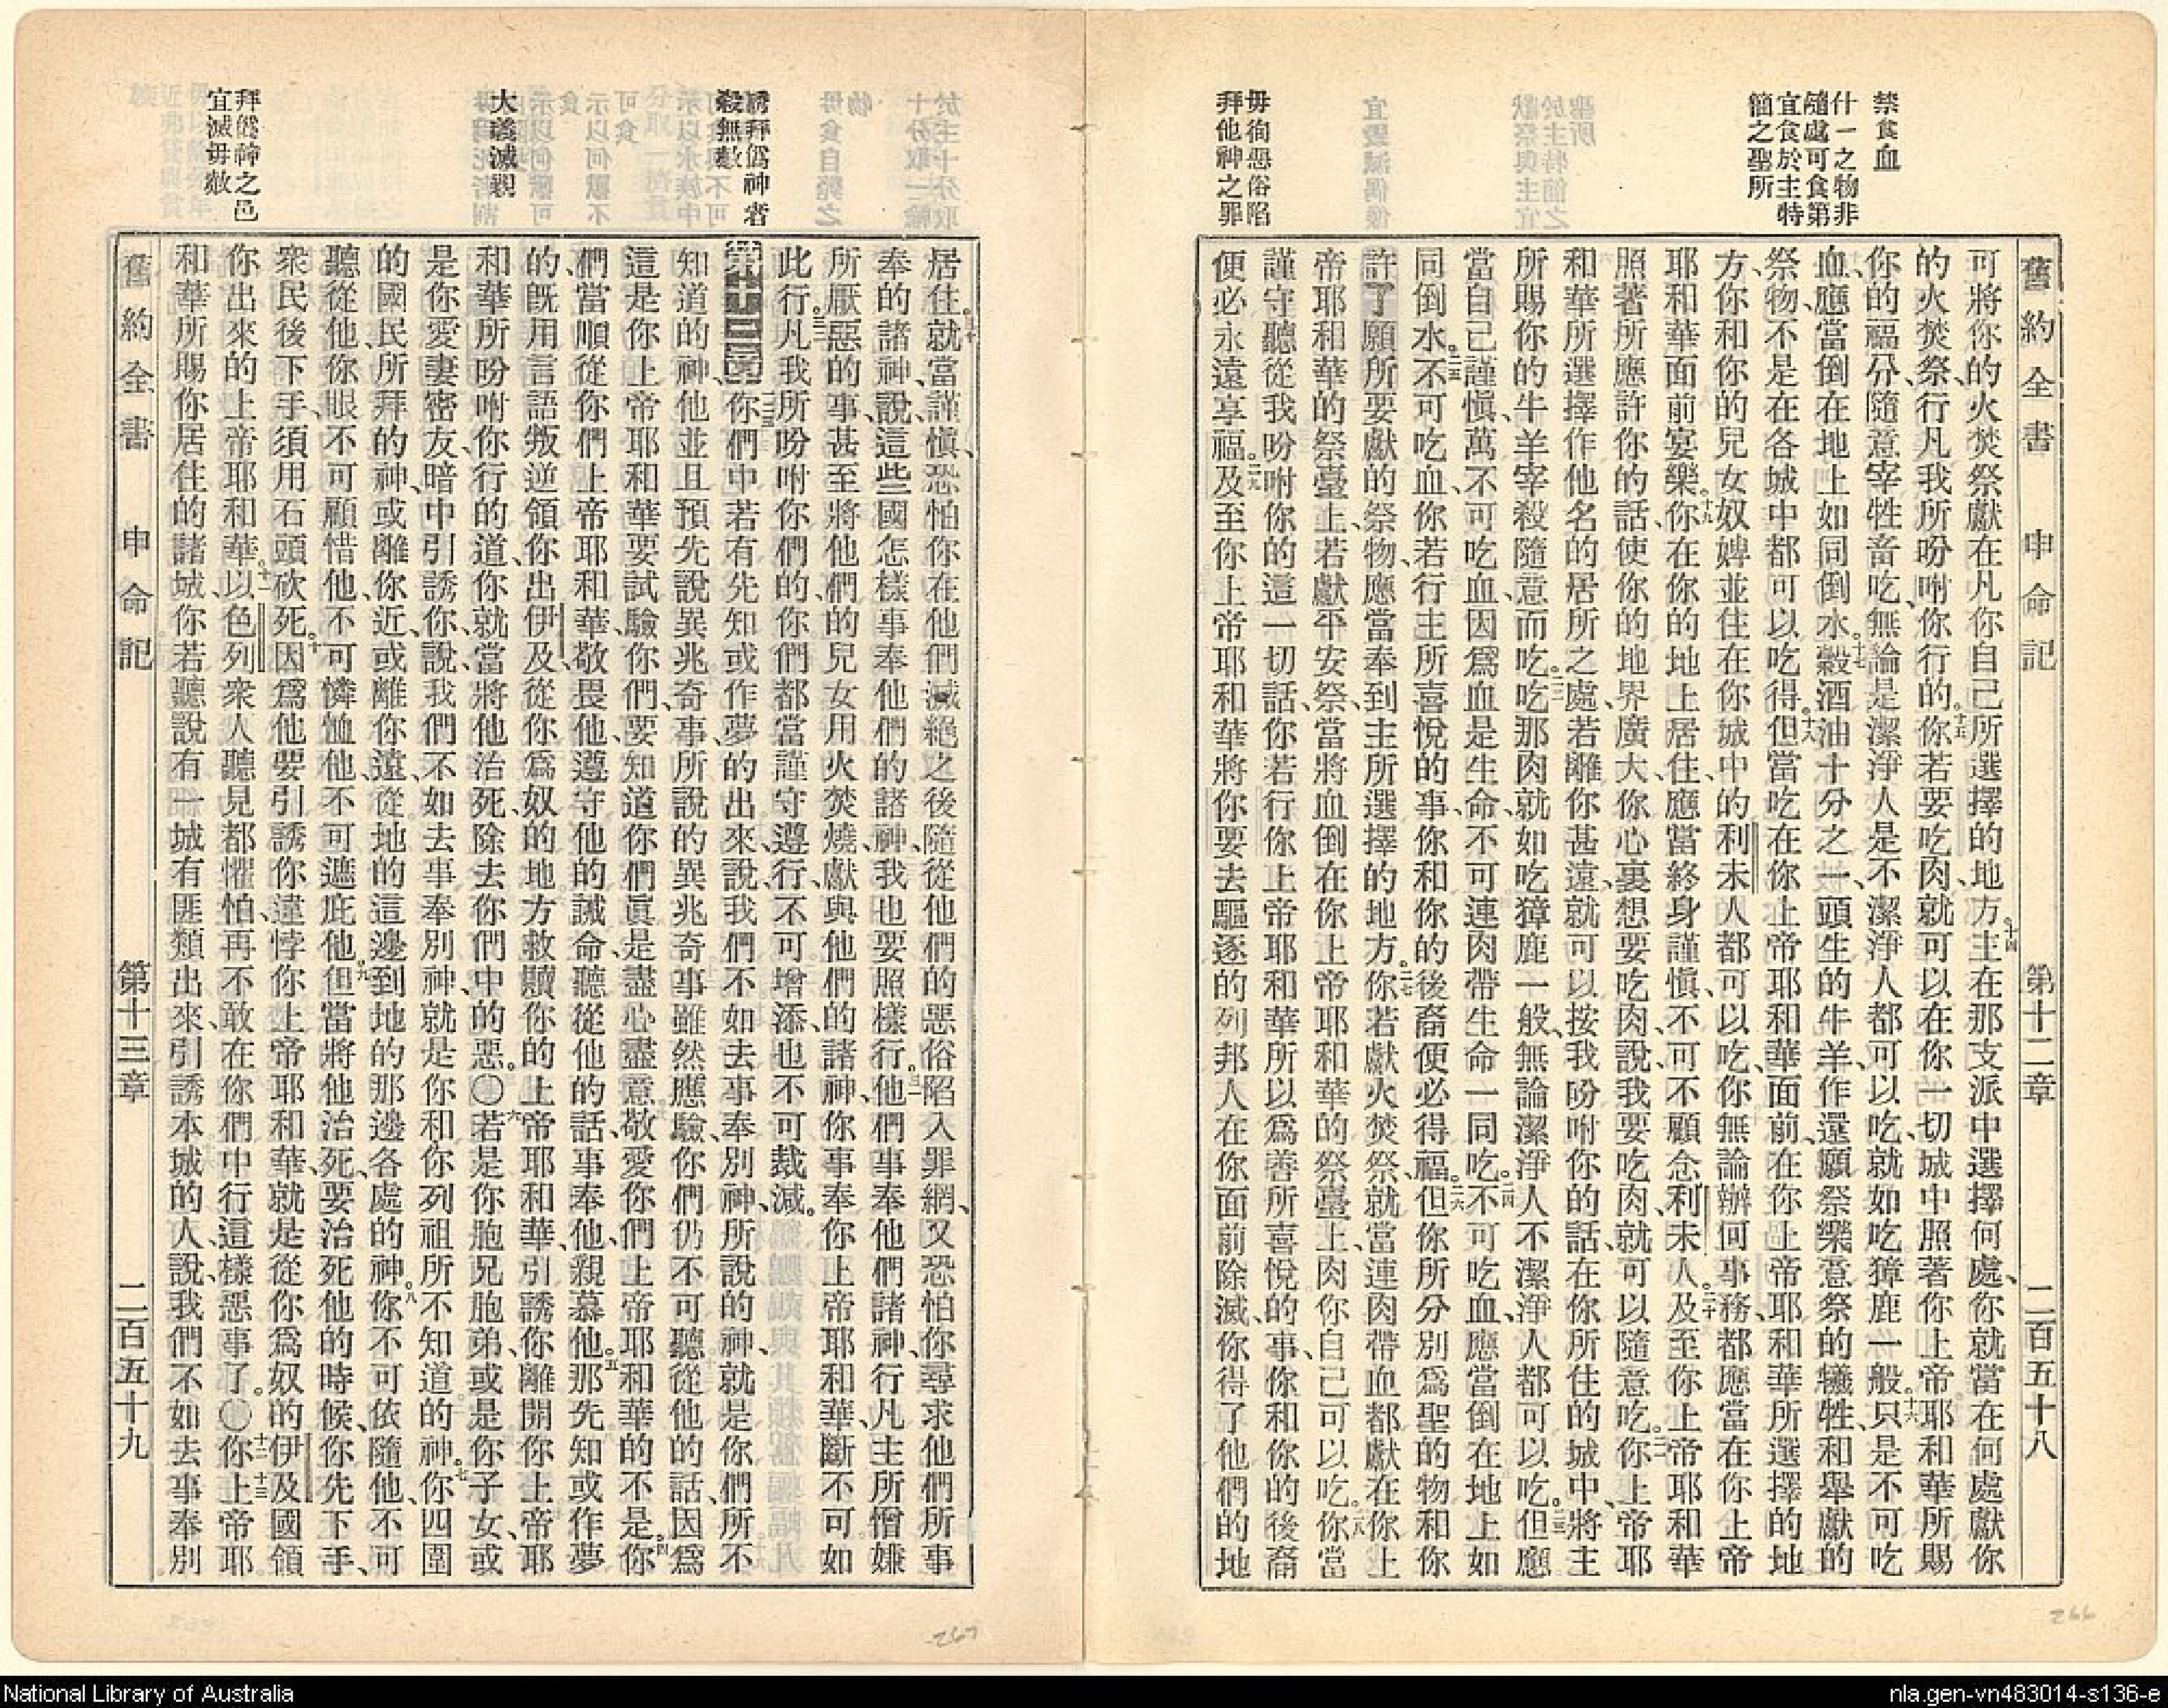 禁食血
什一之物非
隨處可食第
宜食於主特
簡之聖所
毋徇惡俗陷
拜他神之罪
舊約全書 申命記 第十二章 二百五十八
可將你的火焚祭獻在凡你自己所選擇的地方。十四主在那支派中選擇何處、你就當在何處獻你
的火焚祭、行凡我所吩咐、你行的。十五你若要吃肉、就可以在你一切城中照著你上帝耶和華所賜
你的福分、隨意宰牲畜吃、無論是潔淨人是不潔淨人都可以吃、就如吃獐鹿一般。十六只是不可吃
血、應當倒在地上如同倒水。十七穀酒油十分之一、頭生的牛羊、作還願祭樂意祭的犧牲、和舉獻的
祭物、不是在各城中都可以吃得。十八但當吃在你上帝耶和華面前、在你上帝耶和華所選擇的地
方、你和你的兒女奴婢並住在你城中的利未人都可以吃、你無論辦何事務、都應當在你上帝
耶和華面前宴樂。十九你在你的地上居住、應當終身謹慎、不可不顧念利未人。二十及至你上帝耶和華
照著所應許你的話、使你的地界廣大、你心裏想要吃肉、說我要吃肉、就可以隨意吃。二一你上帝耶
和華所選擇作他名的居所之處、若離你甚遠、就可以按我吩咐你的話、在你所住的城中、將主
所賜你的牛羊宰殺隨意而吃。二二吃那肉就如吃獐鹿一般、無論潔淨人不潔淨人都可以吃。二三但應
當自己謹慎、萬不可吃血、因爲血是生命、不可連肉帶生命一同吃。二四不可吃血、應當倒在地上如
同倒水。二五不可吃血、你若行主所喜悅的事、你和你的後裔便必得福。二六但你所分別爲聖的物和你
許了願所要獻的祭物、應當奉到主所選擇的地方。二七你若獻火焚祭、就當連肉帶血都獻在你上
帝耶和華的祭臺上、若獻平安祭、當將血倒在你上帝耶和華的祭臺上、肉你自己可以吃。二八你當
謹守聽從我吩咐你的這一切話、你若行你上帝耶和華所以爲善所喜悅的事、你和你的後裔
便必永遠享福。二九及至你上帝耶和華將你要去驅逐的列邦人在你面前除滅、你得了他們的地
誘拜僞神者
殺無赦
大義滅親
拜僞神之邑
宜滅毋赦
居住、三十就當謹慎、恐怕你在他們滅絕之後、隨從他們的惡俗陷入罪網、又恐怕你尋求他們所事
奉的諸神、說這些國怎樣事奉他們的諸神、我也要照樣行。三一他們事奉他們諸神、行凡主所憎嫌
所厭惡的事、甚至將他們的兒女用火焚燒、獻與他們的諸神、你事奉你上帝耶和華、斷不可如
此行。三二凡我所吩咐你們的、你們都當謹守遵行、不可增添也不可裁減。
第十三章 你們中若有先知或作夢的出來、說我們不如去事奉別神、所說的神、就是你們所不
知道的神、他並且預先說異兆奇事、所說的異兆奇事雖然應驗、你們仍不可聽從他的話、因爲
這是你上帝耶和華要試驗你們、要知道你們眞是盡心盡意、敬愛你們上帝耶和華的不是。四你
們當順從你們上帝耶和華、敬畏他、遵守他的誡命、聽從他的話、事奉他、親慕他。五那先知或作夢
的、旣用言語叛逆領你出伊及、從你爲奴的地方救贖你的上帝耶和華、引誘你離開你上帝耶
和華所吩咐你行的道、你就當將他治死、除去你們中的惡。○六若是你胞兄胞弟、或是你子女、或
是你愛妻密友、暗中引誘你、說我們不如去事奉別神、就是你和你列祖所不知道的神。七你四圍
的國民所拜的神、或離你近、或離你遠、從地的這邊到地的那邊、各處的神。八你不可依隨他、不可
聽從他、你眼不可顧惜他、不可憐恤他、不可遮庇他。九但當將他治死、要治死他的時候、你先下手、
衆民後下手、須用石頭砍死。十因爲他要引誘你違悖你上帝耶和華、就是從你爲奴的伊及國領
你出來的上帝耶和華。十一以色列衆人聽見都懼怕、再不敢在你們中行這樣惡事了。○十二十三你上帝耶
和華所賜你居住的諸城、你若聽說有一城有匪類出來、引誘本城的人、說我們不如去事奉別
舊約全書 申命記 第十三章 二百五十九
266
267
National Library of Australia
nla.gen-vn483014-s136-e